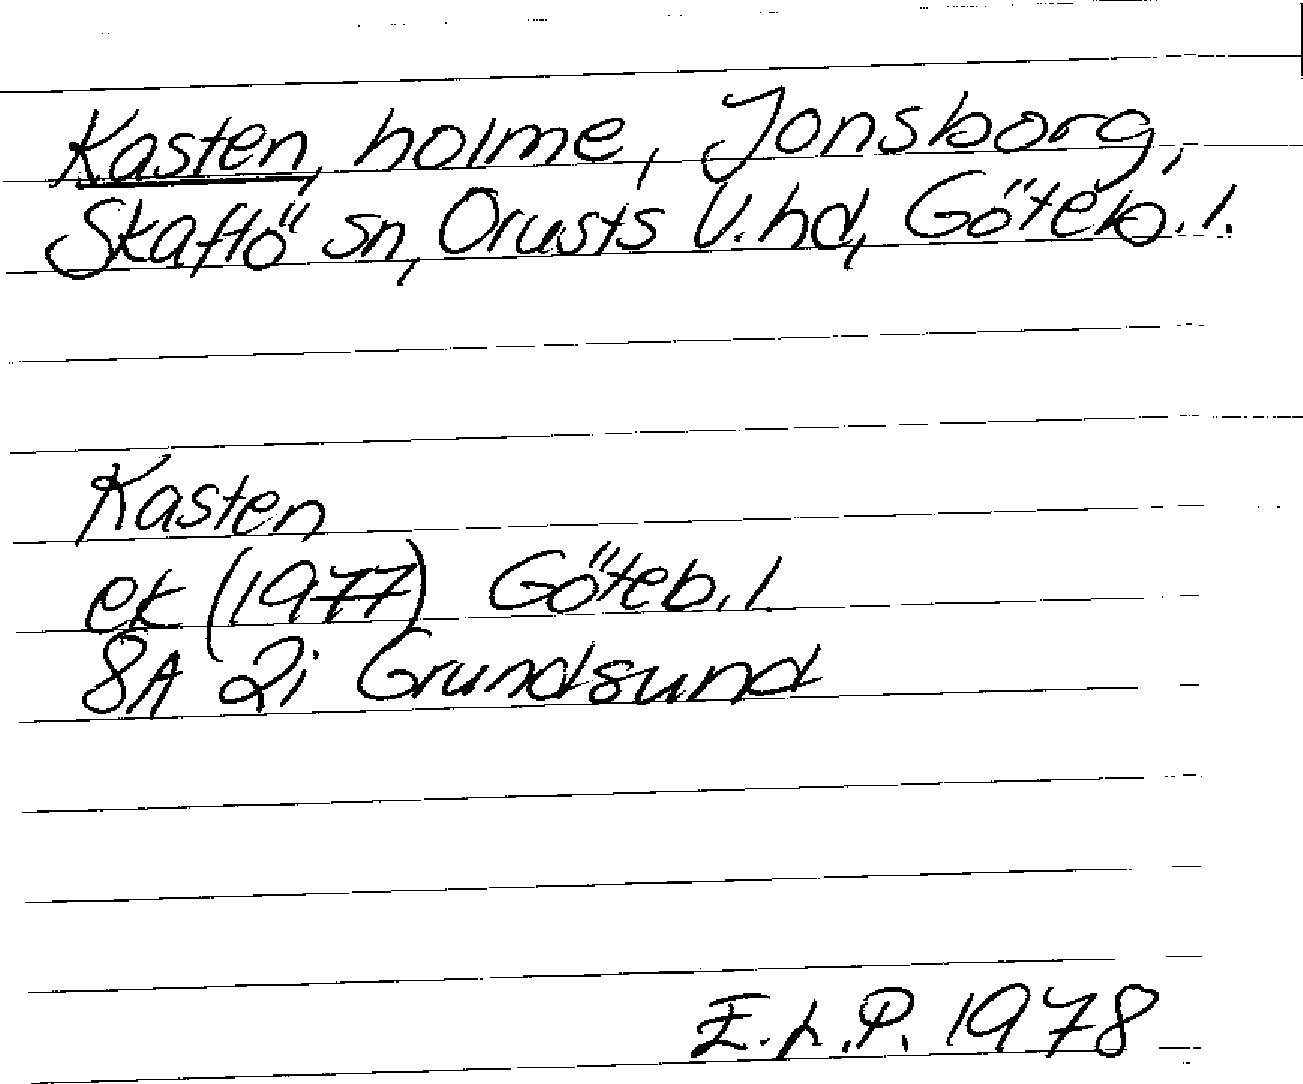 Kasten, holme, Jonsborg,
Skaftö sn, Orusts V. hd, Göteb. l.
Kasten
ek (1977) Göteb. l.
8A 2i Grundsund
E.L.P. 1978